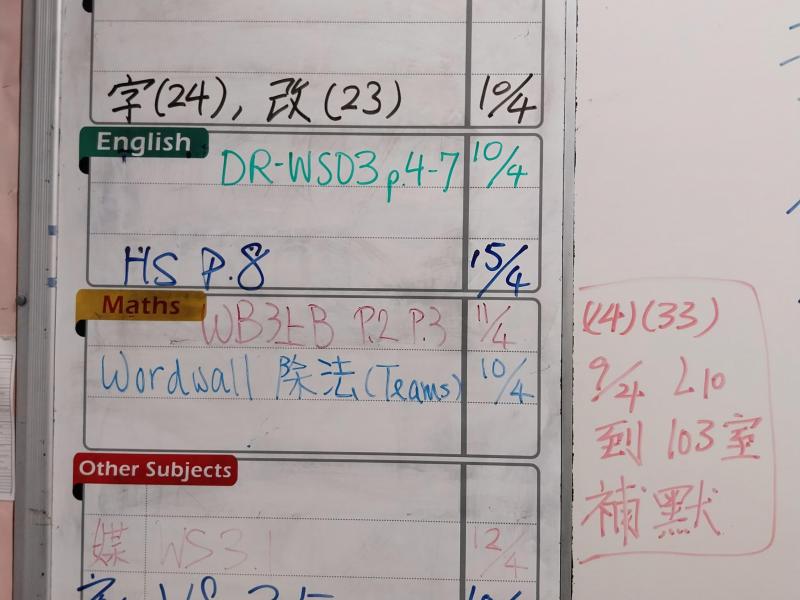 字(24), 改(23) 10/4
English
DR-WS03 p.4-7 10/4
HS P.8 15/4
Maths
WB3上B P.2 P.3 11/4
Wordwall 除法(Teams) 10/4
Other Subjects
媒 WS3.1 12/4
(14)(33)
9/4 L10
到 103室
補默